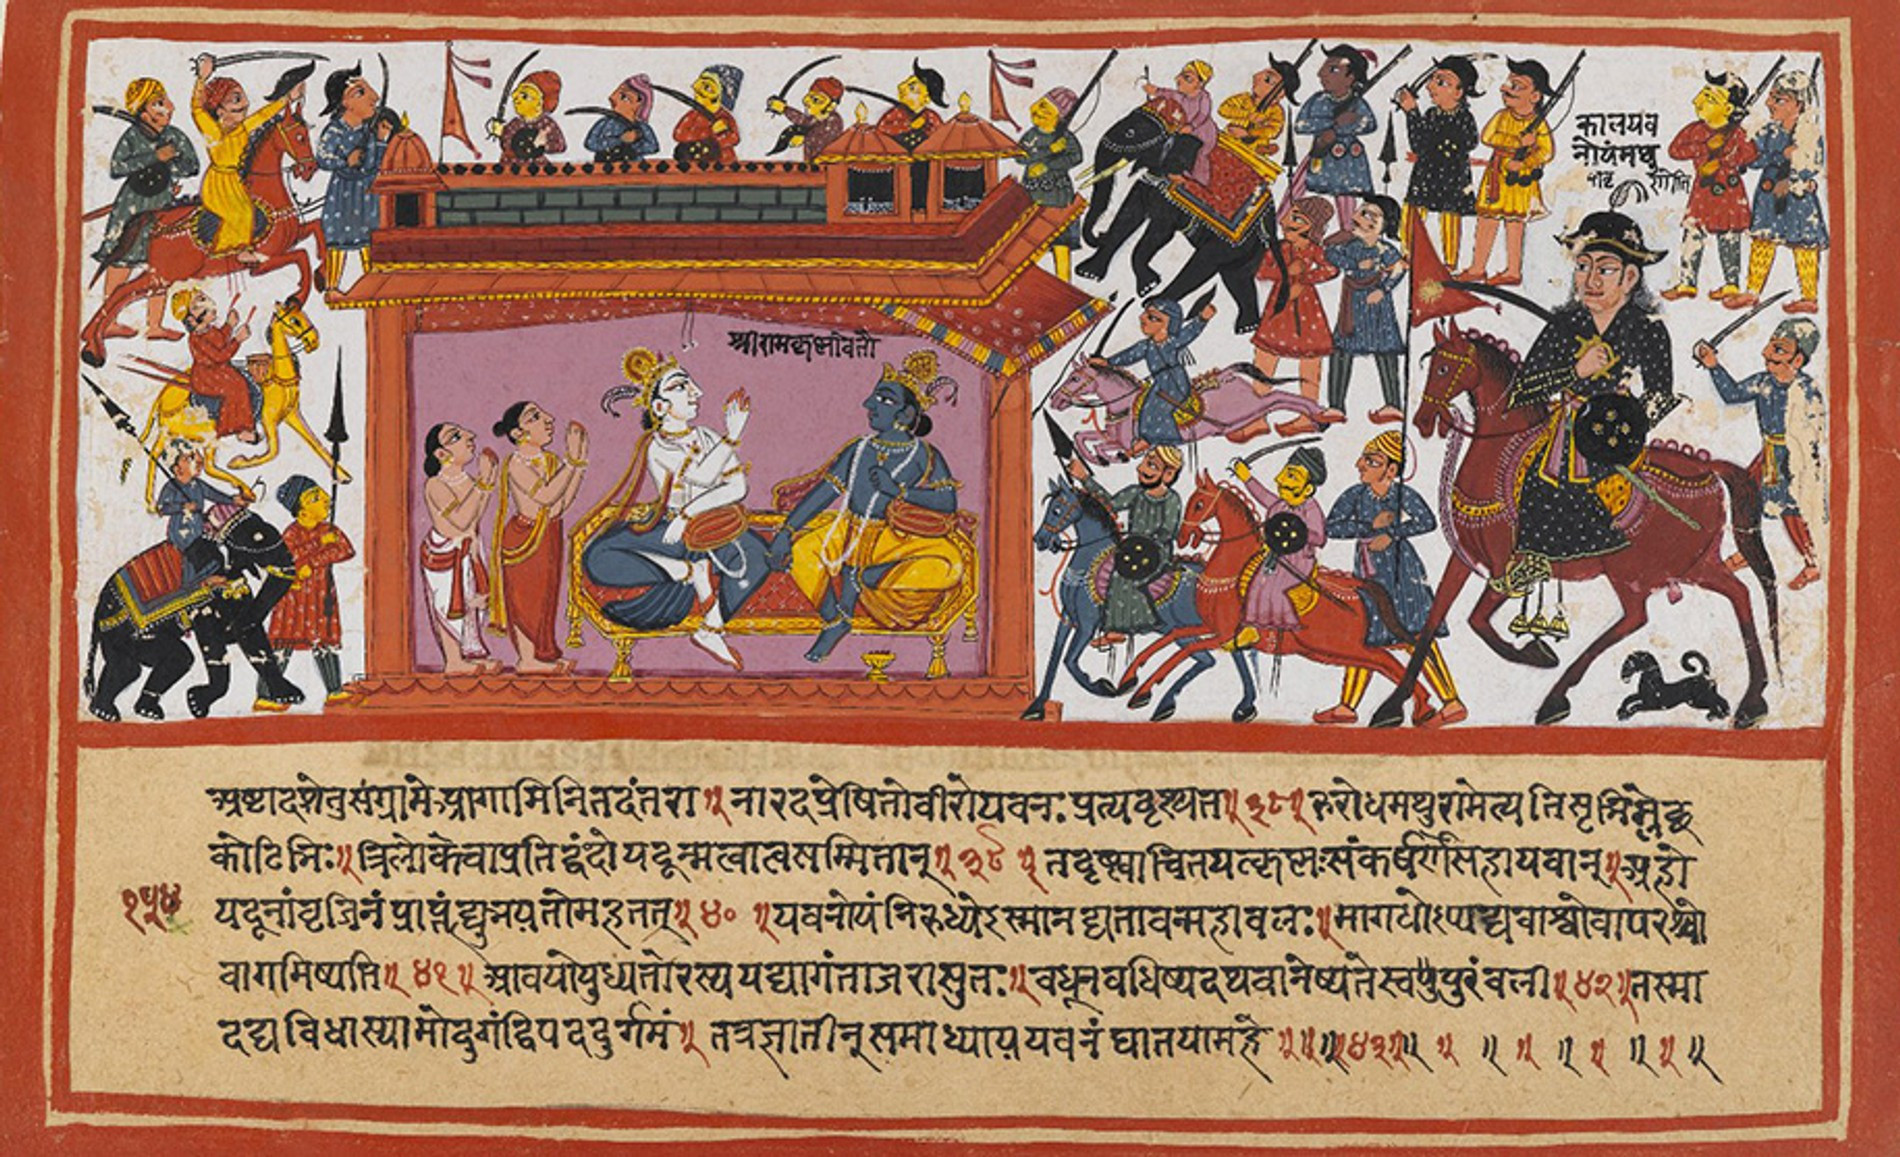 कालयव
नोयंमथु
श्रीरामकृष्णौवतौ
अष्टादशेनुसंग्रामेआगामिनितदंतरा॥नारदप्रेषितोवीरोयवनःप्रत्यदृश्यत॥३८॥रुरोधमथुरामेत्यतिसृभिर्म्लेछ
कोटिभिः॥त्रिलोकेचाप्रतिद्वंदोयदून्मत्वात्मसम्मितान्॥३९॥तंदृष्ट्वाचिंतयत्कृष्णःसंकर्षणसहायवान्॥अहो
१५४
यदूनांवृजिनंप्राप्तंह्युभयतोमहत्॥४०॥यवनोयंनिरुध्येऽस्मानद्यतावन्महाबलः॥मागधोप्यद्यवाश्वोवापरश्वो
वागमिष्यति॥४१॥आवयोयुध्यतोरस्ययद्यागंताजरासुतः॥बंधून्वधिष्यदथवानेष्यतेस्वपुरंबली॥४२॥तस्मा
दद्यविधास्यामोदुर्गंद्विपददुर्गमं॥तत्रज्ञातीन्समाध्याययवनंघातयामहे॥४३॥